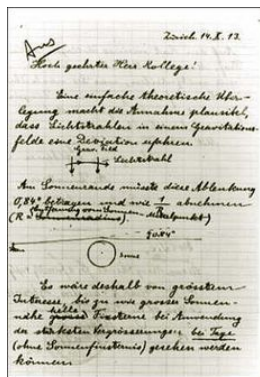 Zürich. 14. X. 13.
Hoch geehrter Herr Kollege!
Eine einfache theoretische Über-
legung macht die Annahme plausibel,
dass Lichtstrahlen in einem Gravitations-
felde eine Deviation erfahren.
Grav. Feld
Lichtstrahl
Am Sonnenrande müsste diese Ablenkung
0,84" betragen und wie 1/R abnehmen
(R = Sonnen-Mittelpunkt)
0,84"
Sonne
Es wäre deshalb von grösstem
Interesse, bis zu wie grosser Sonnen-
nähe helle Fixsterne bei Anwendung
der stärksten Vergrösserungen bei Tage
(ohne Sonnenfinsternis) gesehen werden
können.